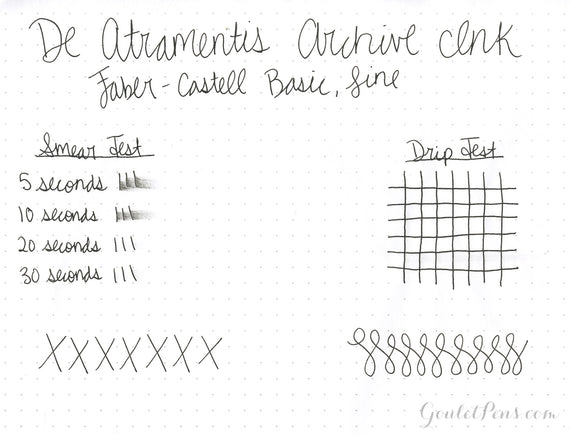 De Atramentis Archive Ink
Faber-Castell Basic, fine
Smear Test
5 seconds
10 seconds
20 seconds
30 seconds
Drip Test
XXXXXXX
GouletPens.com